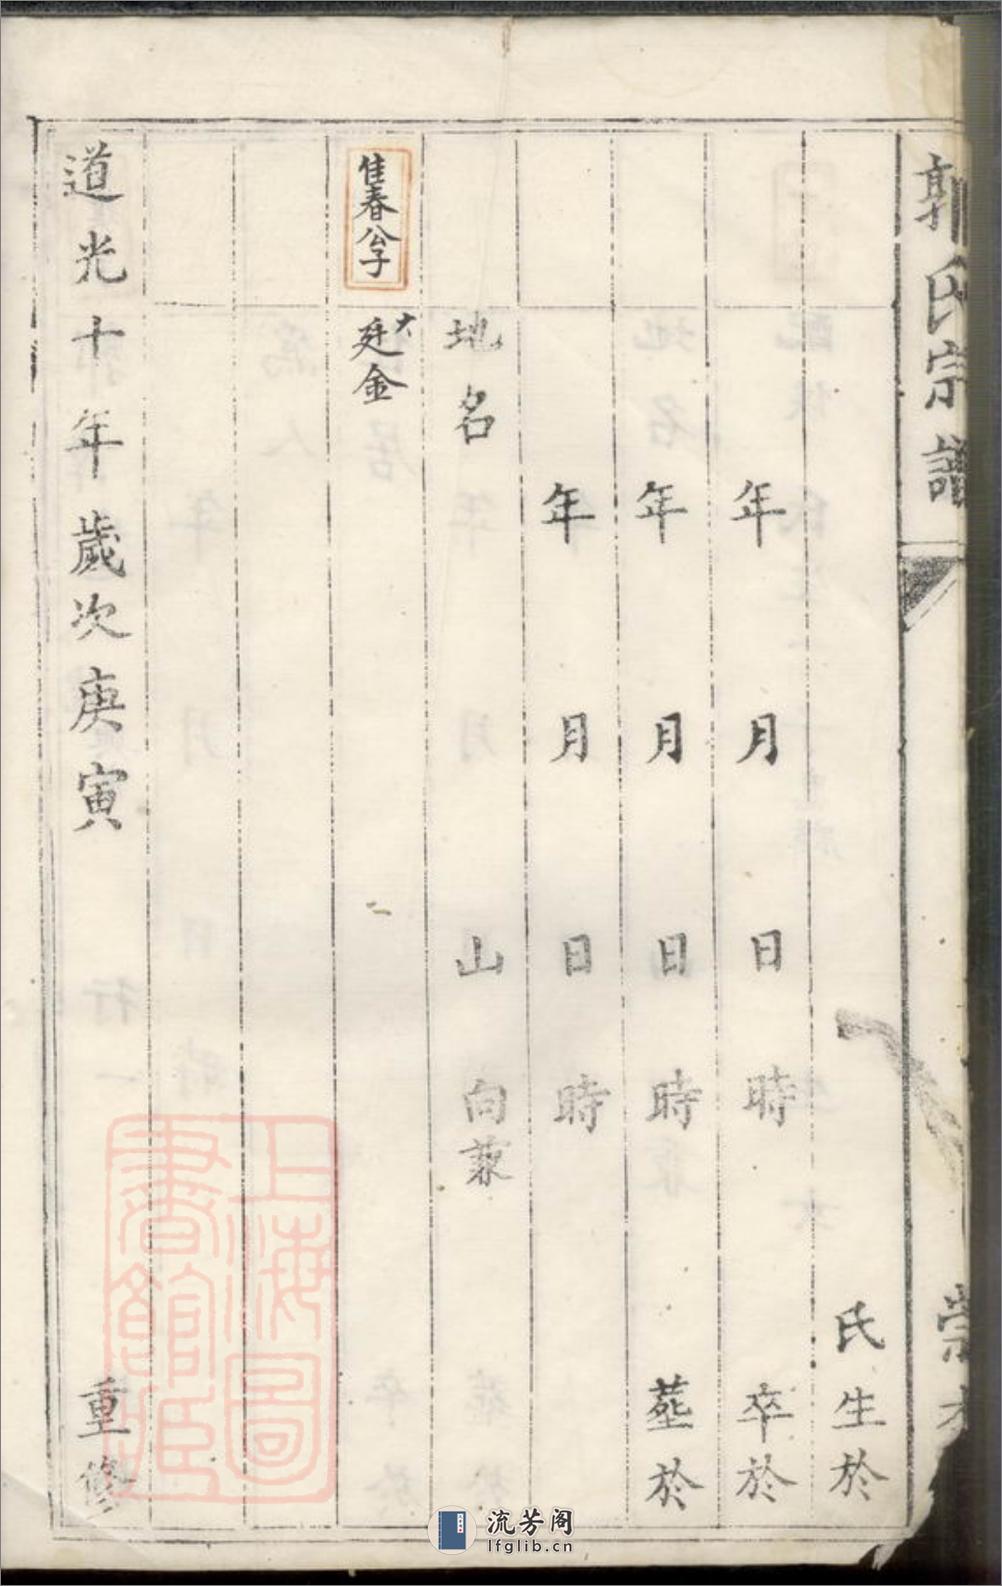 郭氏宗譜
崇本
氏生於
年月日時卒於
年月日時塟於
年月日時
地名山向兼
佳春公子
大
廷金
道光十年歲次庚寅重修
上海圖
書館藏
流芳阁
lfglib.cn